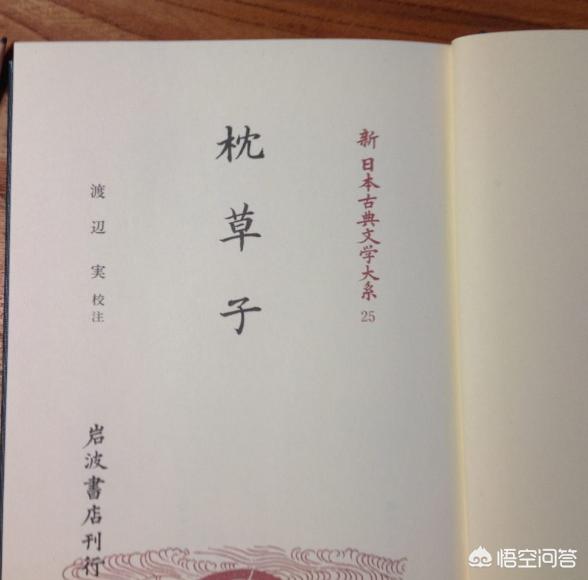 新日本古典文学大系 25
枕草子
渡辺実 校注
岩波書店刊行
悟空问答